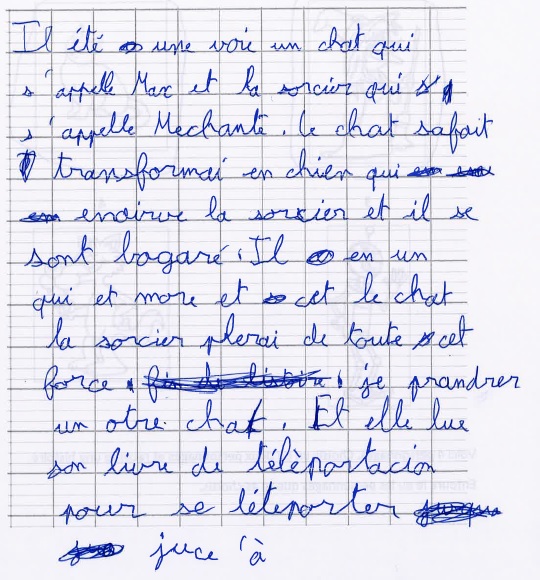 Il été une voie un chat qui
s'appelle Max et la sorcier qui
s'appelle Mechante. le chat safait
transformai en chien qui
enairve la sorcier et il se
sont bagaré. Il en un
qui et more et cet le chat
la sorcier plerai de toute cet
force. fin de listoire. je prandrer
un otre chat. Et elle lue
son livre de télèportacion
pour se léteporter
juce 'à